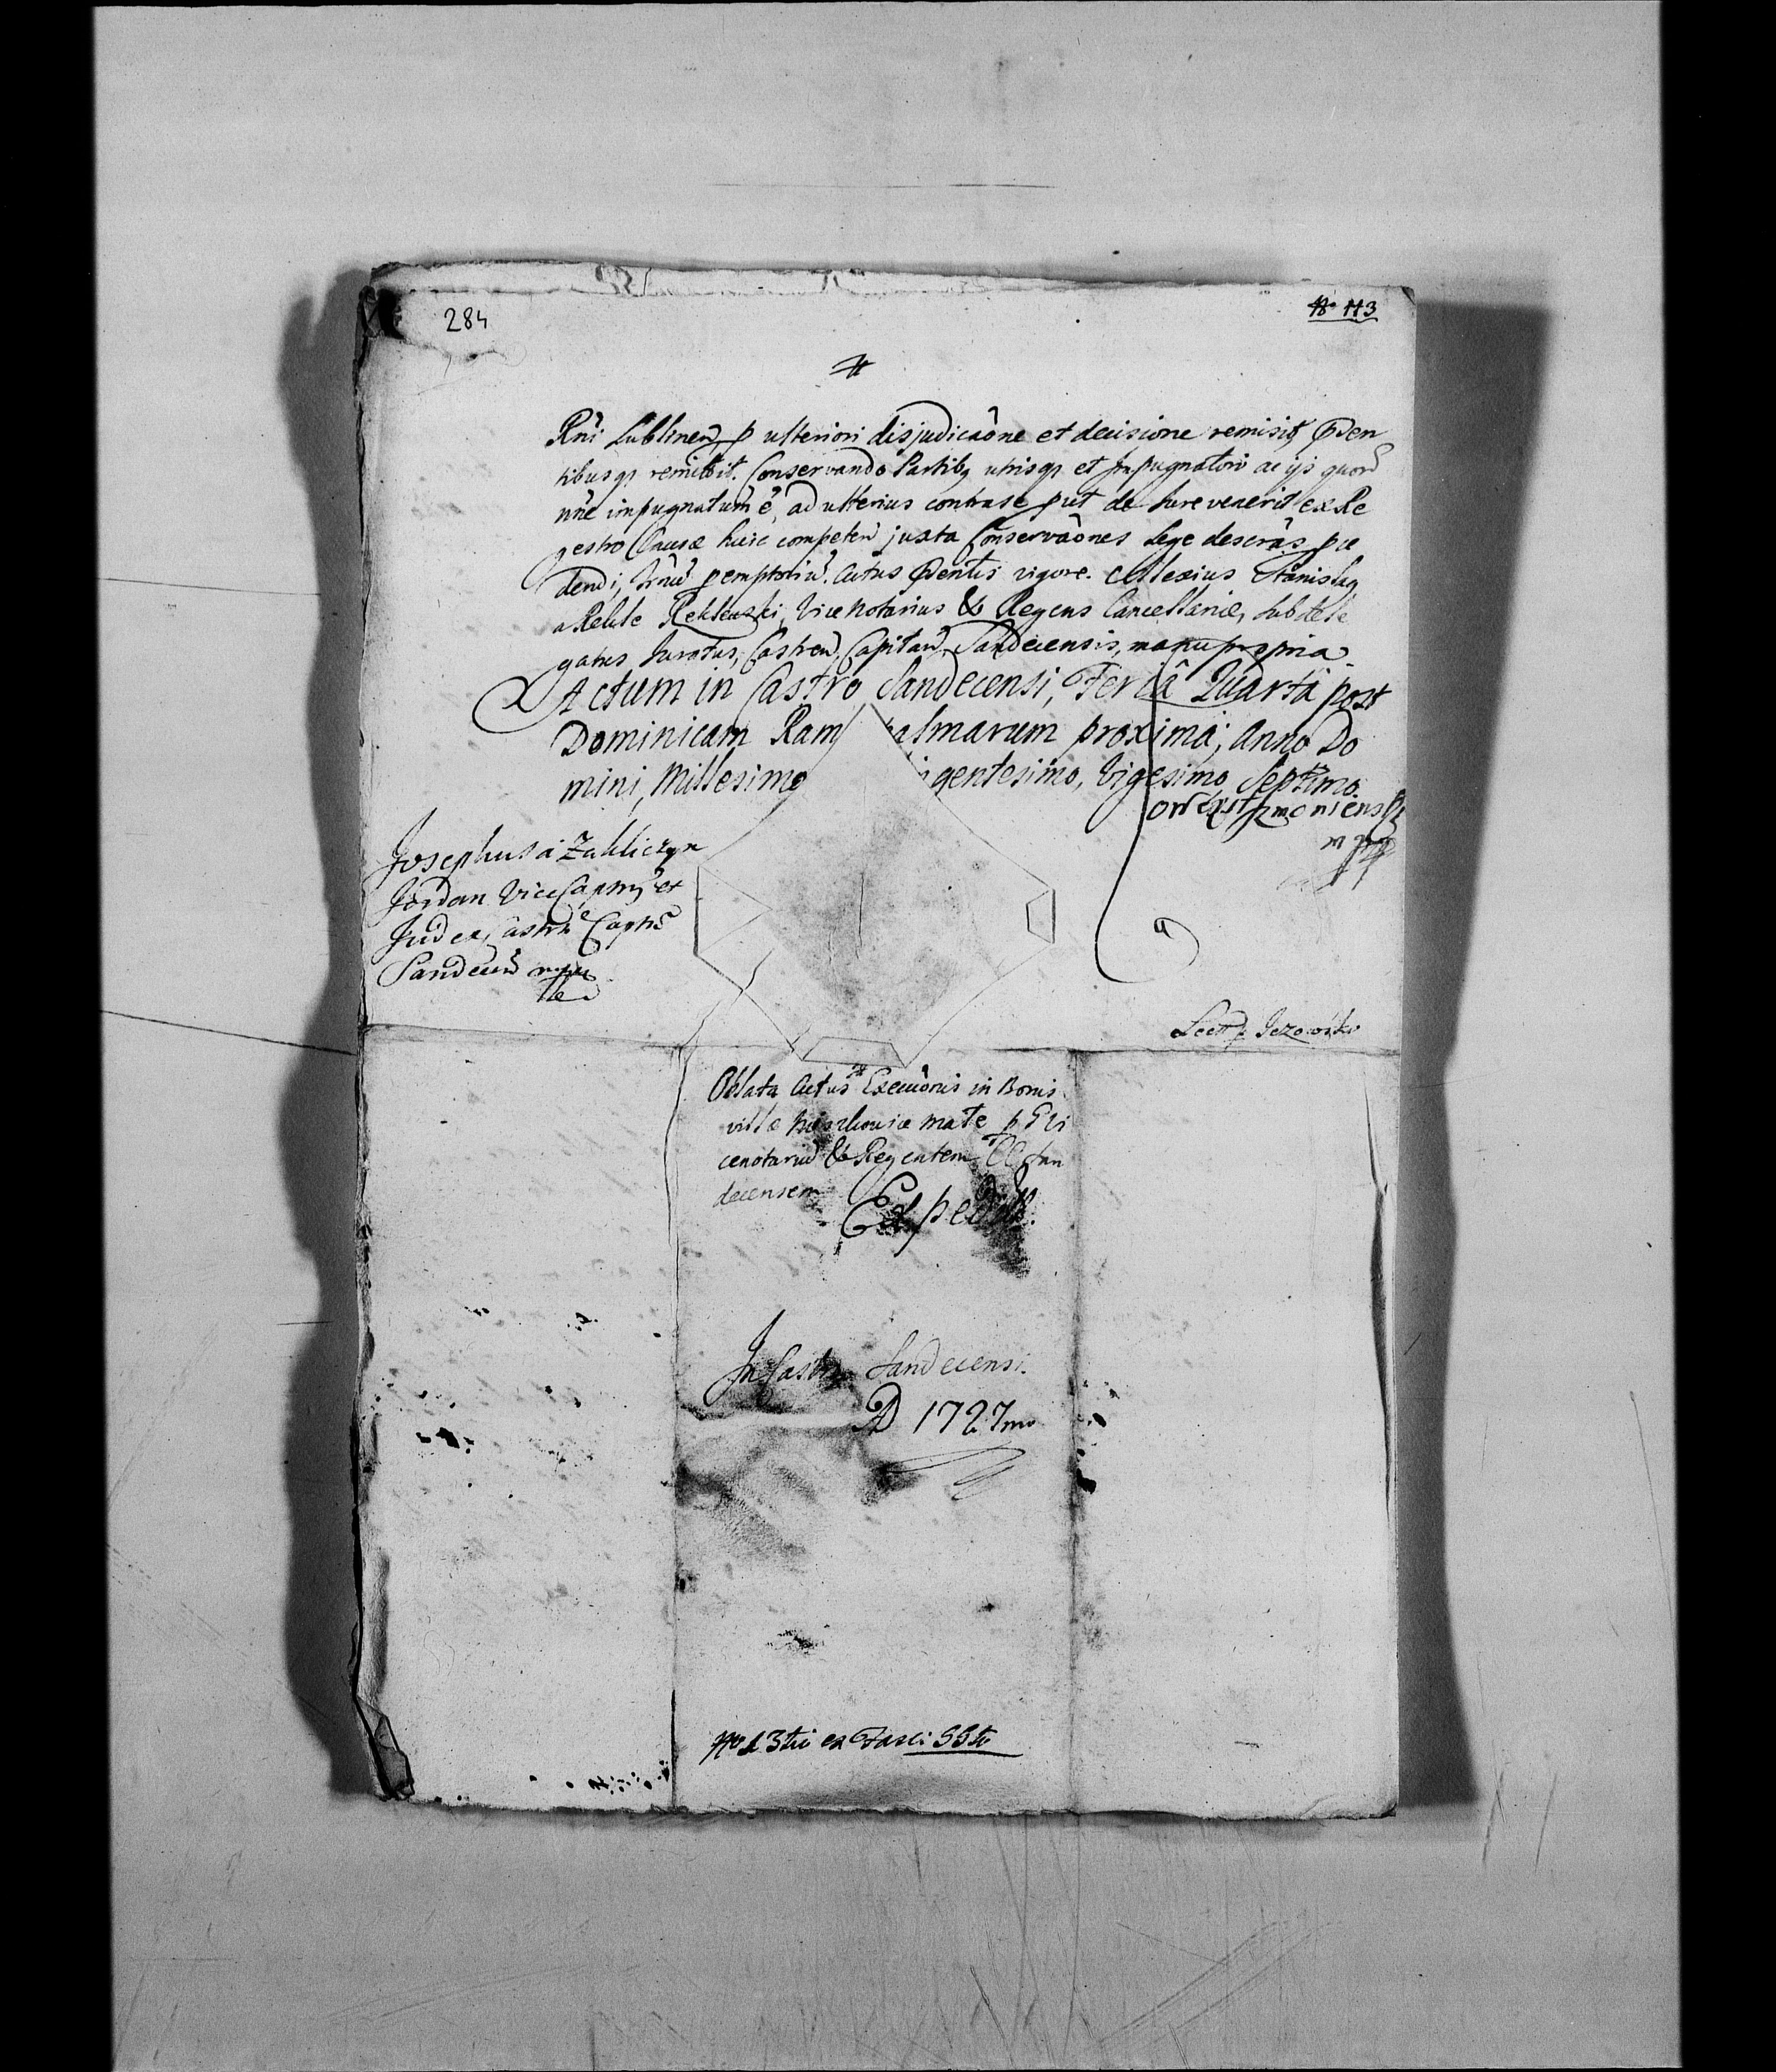 284
No 113
Rni Lublinen p ulteriori disjudicaône et decisione remisit, Pden
tibusqs remittit. Conservando Partibq utrisqs et Impugnatori ac ijs quor
nne impugnatum ê, ad ulterius contrase put de Jure venerit ex Re
gestro Causæ huic competen juxta Conservaônes Lege descrâs pce
dendi, Trnu pemptoriu. Actus Pdentis vigore. Alexius Stanislaq
a Rekle Reklewski, Vice Notarius & Regens Cancellariæ, Subdele
gatus Juratus, Castren, Capitan, Sandecensis, manu propria
Actum in Castro Sandecensi, Feria Quarta post
Dominicam Ram almarum proxima, Anno Do
mini, Millesimo gentesimo, Vigesimo Septimo.
Josephus a Zakliczyn
Jordan ViceCapnq et
Judex, Castr Capts
Sandecen mpp
Lect p Jezowski
Oblata Actus Execuônis in Bonis
villæ mate p G Vi
cenotariu & Regentem CC San
decensem
Expedit.
In Castro Sandecensi.
AD 1727mo
No 13tii ex Fasci 55to